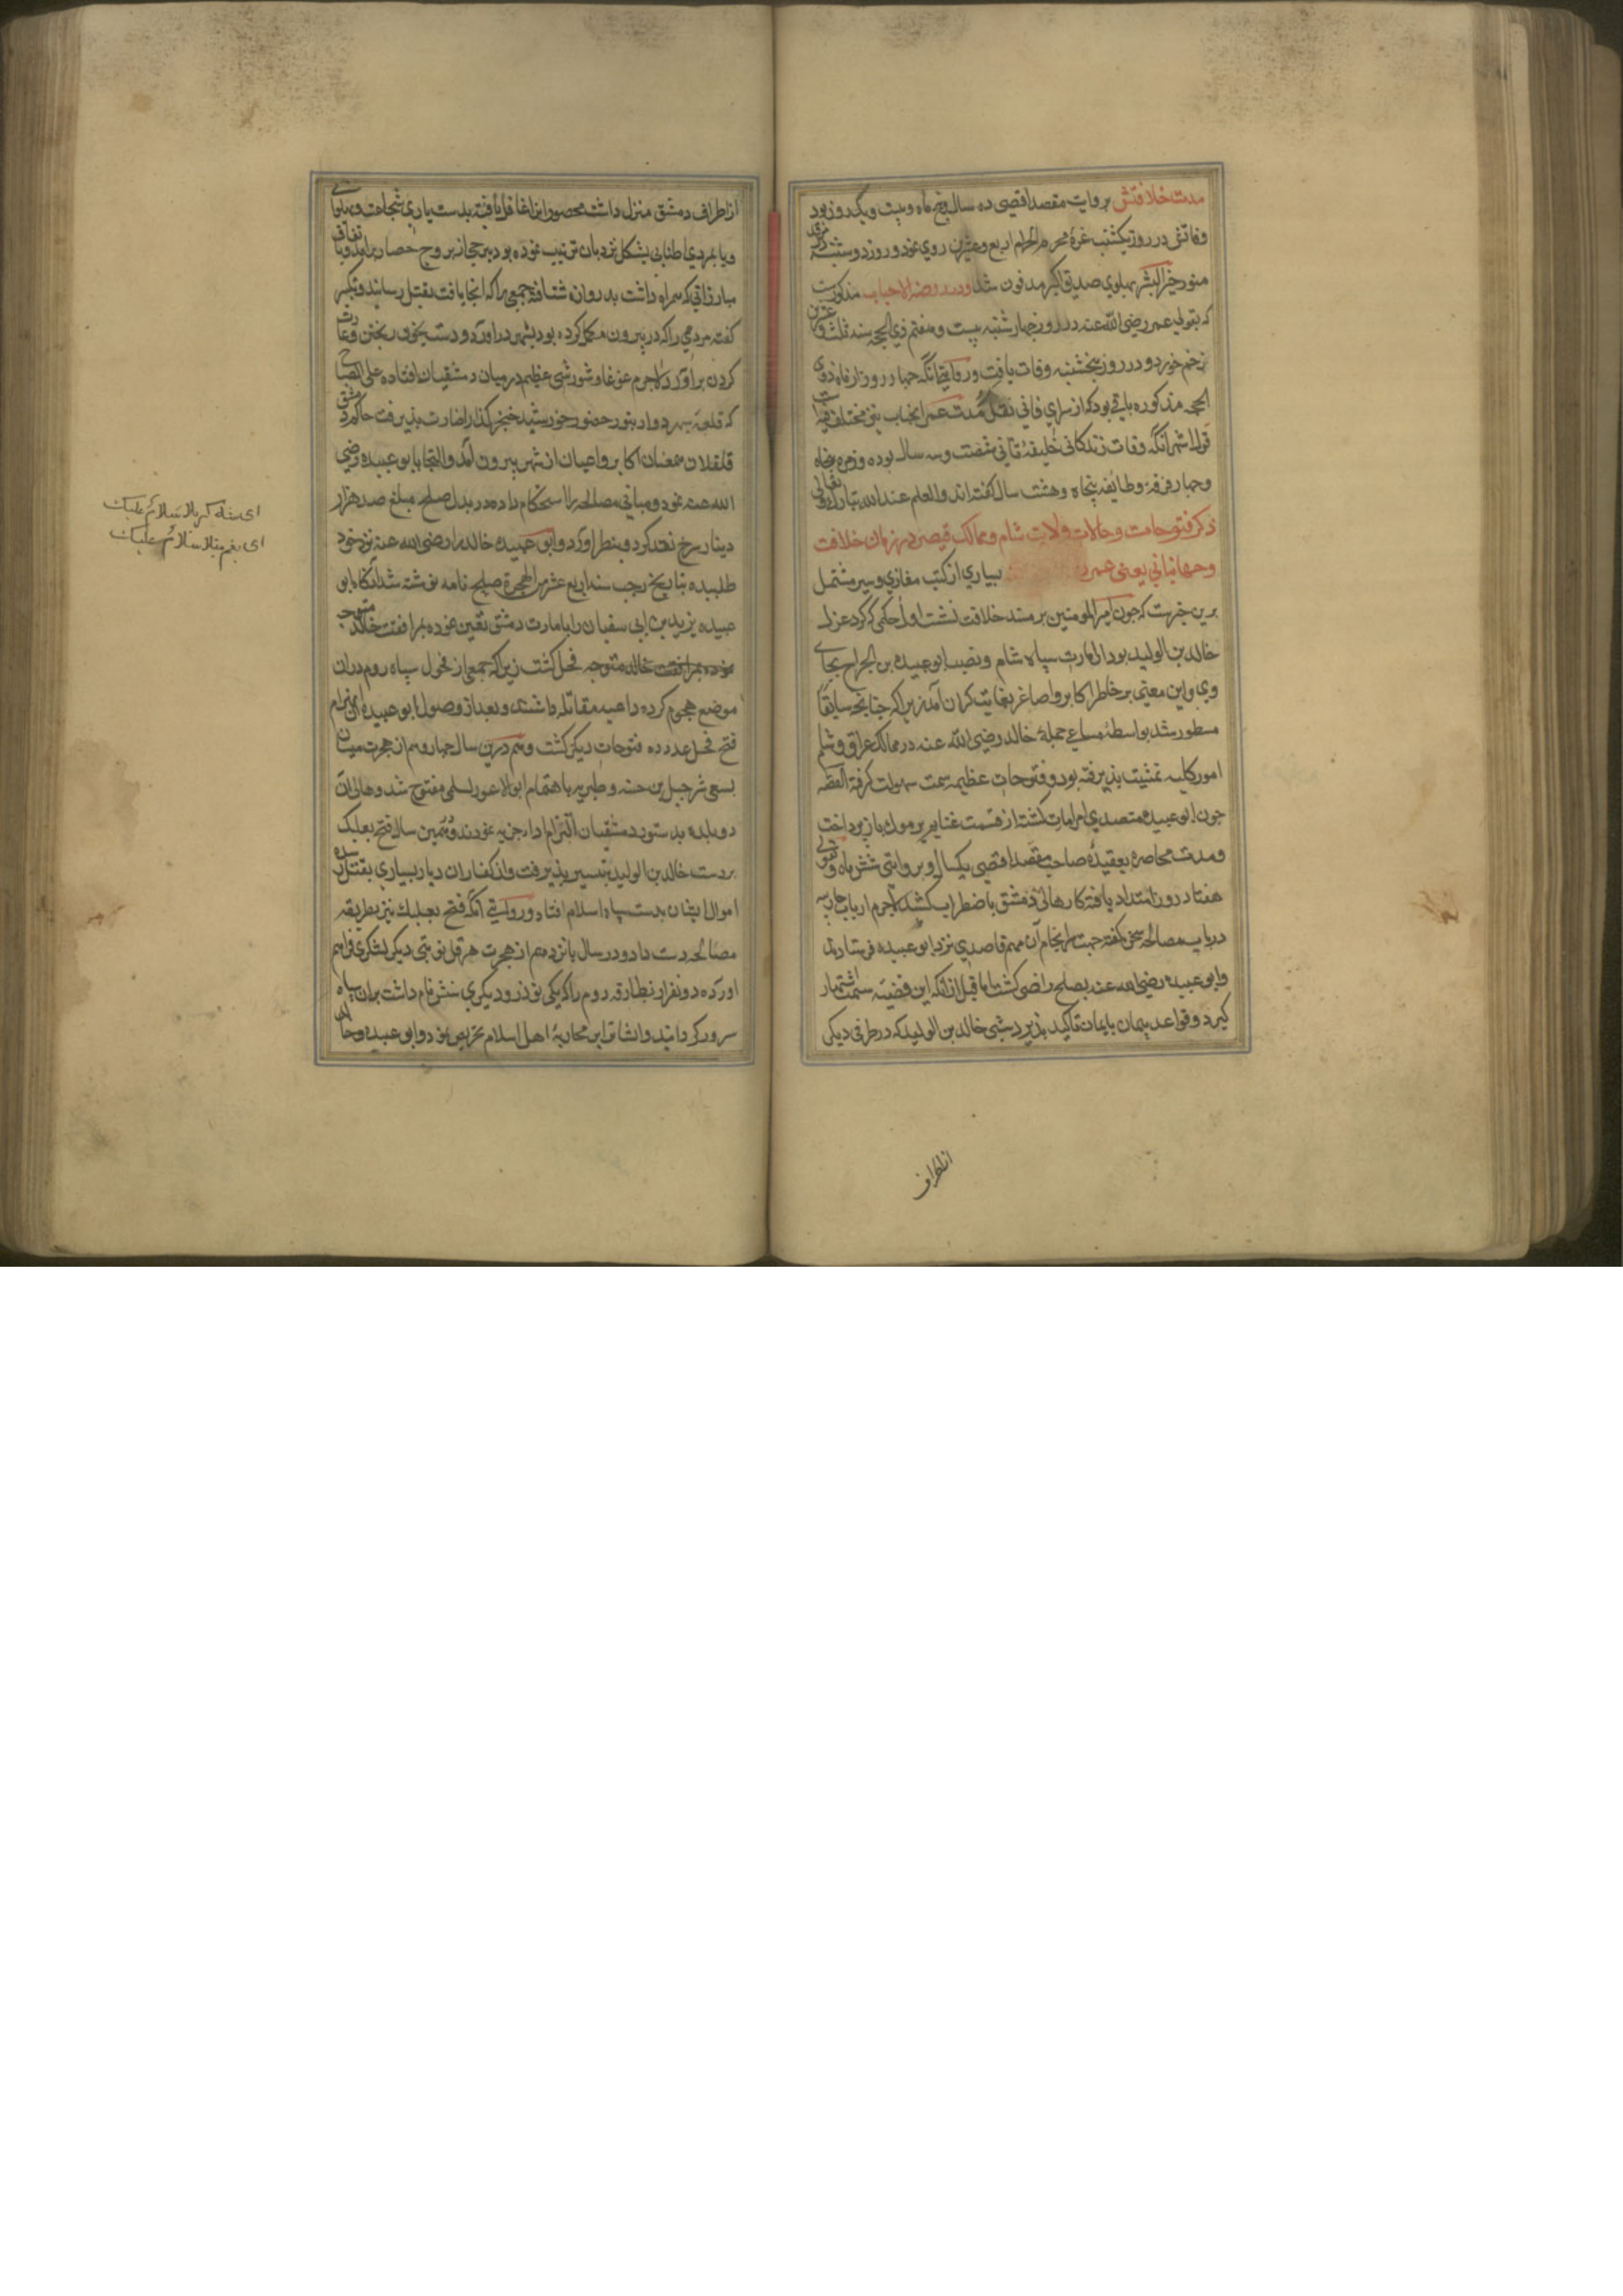 مدت خلافتش بروایت مقصد اقصی ده سال و پنج ماه و بیست و یک روز بود
وفاتش در روز یکشنبه غرهٔ محرم الحرام اربع و عشرین روی نمود و روز دوشنبه در مرقد
منور خیر البشر بپهلوی صدیق اکبر مدفون شد و در روضة الاحباب مذکورست
که بقولی عمر رضی الله عنه در روز چهارشنبه بیست و هفتم ذی الحجه سنه ثلث و عشرین
زخم خورد و در روز پنجشنبه وفات یافت و روایتی آنکه چهار روز از ماه ذی
الحجه مذکوره باقی بود که از سرای فانی نقل مدت عمر انجناب نیز مختلف فیه است
قول اشهر آنکه وفات زندکانی خلیفهٔ ثانی شصت و سه سال بوده و زمره پنجاه
و چهار فرقهٔ و طایفه پنجاه و هشت سال کفته اند و العلم عند الله تبارک و تعالی
ذکر فتوحات و حالات ولات شام و ممالک قیصر در زمان خلافت
و جهانبانی یعنی عمر بسیاری از کتب مغازی و سیر مشتمل
برین خبرست که چون امیر المومنین بر مسند خلافت نشست اول حکمی که کرد عزل
خالد بن الولید بود از امارت سپاه شام و نصب ابو عبیده بن الجراح بجای
وی و این معنی بر خاطر اکابر و اصاغر بغایت کران آمد زیرا که چنانچه سابقا
مسطور شد بواسطهٔ مساعی جمیلهٔ خالد رضی الله عنه در ممالک عراق و شام
امور کلیه تمشیت پذیرفته بود و فتوحات عظیمه سمت سهولت کرفته القصه
چون ابو عبیده متصدی امر امارت کشته از قسمت غنایم یرموک باز پرداخت
و مدت محاصره بعقیدهٔ صاحب مقصد اقصی یکسال و بروایتی شش ماه و بقولی
هفتاد روز امتداد یافته کار اهالی دمشق باضطراب کشید لاجرم ارباب
در باب مصالحه سخن کفته جهت سرانجام آن مهم قاصدی نزد ابو عبیده فرستادند
و ابو عبیده رضی الله عنه بصلح راضی کشت اما قبل از آنکه این قضیه سمت اشتهار
کیرد و قواعد پیمان بایمان تاکید پذیرد شبی خالد بن الولید که در طرفی دیکر
از اطراف
از اطراف دمشق منزل داشت محصورانرا غافل یافته بدست یاری شجاعت و پهلوانی
و پایمردی اطنابی بشکل نردبان ترتیب نموده بود بر برجی از بروج حصار برامد و باتفاق
مبارزانی که همراه داشت بدروازه شتافته جمعی را که انجا یافت بقتل رسانید و تکبیر
کفته مردمی را که در بیرون مکمل کرده بود بشهر در اورد و دست بخون ریختن و غارت
کردن بر آورد لاجرم غوغا و شورشی عظیم در میان دمشقیان افتاده علی الصباح
که قلعه سپهر دوار بنور حضور خورشید خنجر کذار نضارت پذیرفت حاکم دمشق
قلقلان بهمعنان اکابر و اعیان از شهر بیرون آمد و التجا بابو عبیده رضی
الله عنه نمود و مبانی مصالحه را استحکام داده در بدل صلح مبلغ صد هزار
دینار سرخ نقد کرد و بنظر اورد و ابو عبیده خالد را رضی الله عنه نزد خود
طلبیده بتاریخ رجب سنه اربع عشر من الهجرة صلح نامه نوشته شد آنکاه ابو
عبیده یزید بن ابی سفیان را بامارت دمشق تعین نموده بمرافقت خالد متوجه
نموده بمرافقت خالد متوجه فحل کشت زیرا که جمعی از فحول سپاه روم در ان
موضع هجوم کرده داعیه مقاتله داشتند و بعد از وصول ابو عبیده ان
فتح فحل مدد ده فتوحات دیکر کشت و هم درین سال چهاردهم از هجرت میسان
بسعی شرجیل بن حسنه و طبریه باهتمام ابو الاعور السلمی مفتوح شد و اهالی آن
دو بلده بدستور دمشقیان التزام ادای جزیه نمودند و همین سال فتح بعلبک
بر دست خالد بن الولید تیسیر پذیرفت و از کفار ان دیار بسیاری بقتل رسیده
اموال ایشان بدست سپاه اسلام افتاد و روایتی آنکه فتح بعلبک نیز بطریقه
مصالحه دست داد و در سال پانزدهم از هجرت هرقل نوبتی دیکر لشکری فراهم
اورده دو نفر از بطارقه روم را که یکی توذر و دیکری سنش نام داشت بران سپاه
سرور کردانید و ایشانرا بر محاربهٔ اهل اسلام تحریص نمود و ابو عبیده و خالد
ای شاه کربلا سلام علیک